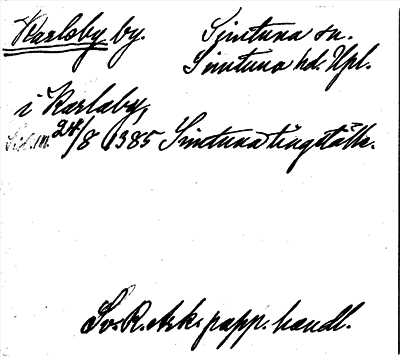 Karlsby by. Simtuna sn.
Simtuna hd. Upl.
i Karlaby,
24/8 1385 Simtuna tingställe.
Sv. R. Ark. papp. handl.